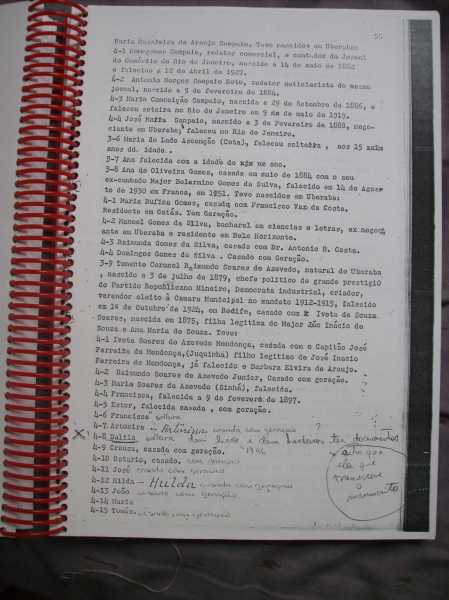 55
Maria Brasileira de Araujo Sampaio. Teve nascidos em Uberaba
4-1 Sampaio, redator comercial, e contador do Jornal
do Comércio do Rio de Janeiro, nascido a 14 de maio de 1882
e falecido a 12 de Abril de 1927.
4-2 Antonio Borges Sampaio Neto, redator noticiarista do mesmo
jornal, nascido a 5 de fevereiro de 1884.
4-3 Maria Conceição Sampaio, nascida a 29 de Setembro de 1886, e
faleceu solteira no Rio de Janeiro em 9 de maio de 1919.
4-4 José Sampaio, nascido a 3 de Fevereiro de 1888, nego-
ciante em Uberaba; faleceu no Rio de Janeiro.
3-6 Maria do Lado Ascenção (Cota), faleceu solteira , aos 15
anos de idade.
3-7 Ana falecida com a idade de um ano.
3-8 Ana de Oliveira Gomes, casada em maio de 1884 com o seu
ex-cunhado Major Belarmino Gomes da Silva, falecido em 14 de Agos
to de 1930 em Franca, em 1951. Teve nascidos em Uberaba:
4-1 Maria Rufina Gomes, casada com Francisco Van da Costa.
Residente em Goiás. Tem Geração.
4-2 Manoel Gomes da Silva, bacharel em ciencias e letras, ex negoci
ante em Uberaba e residente em Belo Horizonte.
4-3 Raimunda Gomes da Silva, casada com Dr. Antonio R. Costa.
4-4 Domingos Gomes da Silva . Casado com Geração.
3-9 Tenente Coronel Raimundo Soares de Azevedo, natural de Uberaba
, nascido a 3 de julho de 1879, chefe politico de grande prestigio
do Partido Republicano Mineiro, Democrata industrial, criador,
vereador eleito à Camara Municipal no mandato 1912-1915, falecido
em 14 de Outubro de 1924, em Recife, casado com Iveta de Souza
Soares, nascida em 1875, filha legitima do Major Inácio de
Souza e Ana Maria de Souza. Teve:
4-1 Iveta Soares de Azevedo Mendonça, casada com o Capitão José
Parreira de Mendonça,(Juquinha) filho legitimo de José Inacio
Parreira de Mendonça, já falecido e Barbara Elvira de Araujo.
4-2 Raimundo Soares de Azevedo Junior, Casado com geração.
4-3 Maria Soares de Azevedo (Sinhá), falecida.
4-4 Francisca, falecida a 9 de fevereiro de 1897.
4-5 Ester, falecida casada , com geração.
4-6 Francisca solteira
4-7 Artemira — casada com geração ?
X 4-8 Dalila solteira
4-9 Creuza, casada com geração. 1946
4-10 Dotario, casado. com geração
4-11 José casado com geração
4-12 Hilda — Hulda casada com geração
4-13 João casado com geração
4-14 Maria
4-15 Tomás. casado com geração
acho que
ela que
transcreve
o
manuscrito